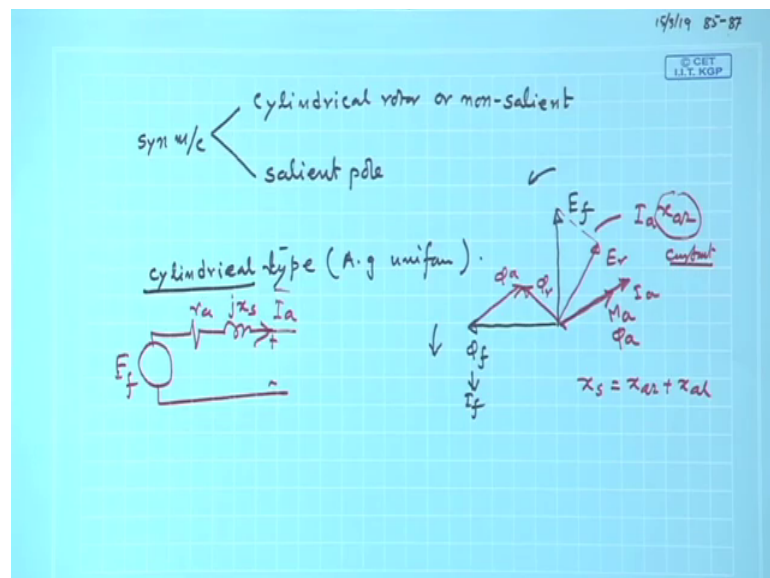 15/3/19 85-87
© CET
I.I.T. KGP
Syn m/c
cylindrical rotor or non-salient
salient pole
cylindrical type (A.g uniform).
ra jxs Ia
+
-
Ef
Ef
Ia xar
Er
constant
Φa Φr
Ia
Ma
Φa
Φf
If
xs = xar + xal